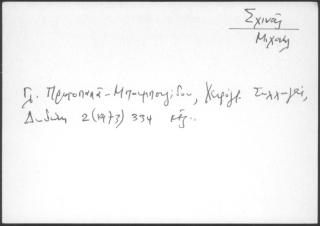 Σχινάς
Μιχαήλ
Γλ. Πρωτοπαπά-Μπουμπουλίδου, Χειρόγρ. Συλλογές,
Δωδώνη 2 (1973) 334 κἑξ.